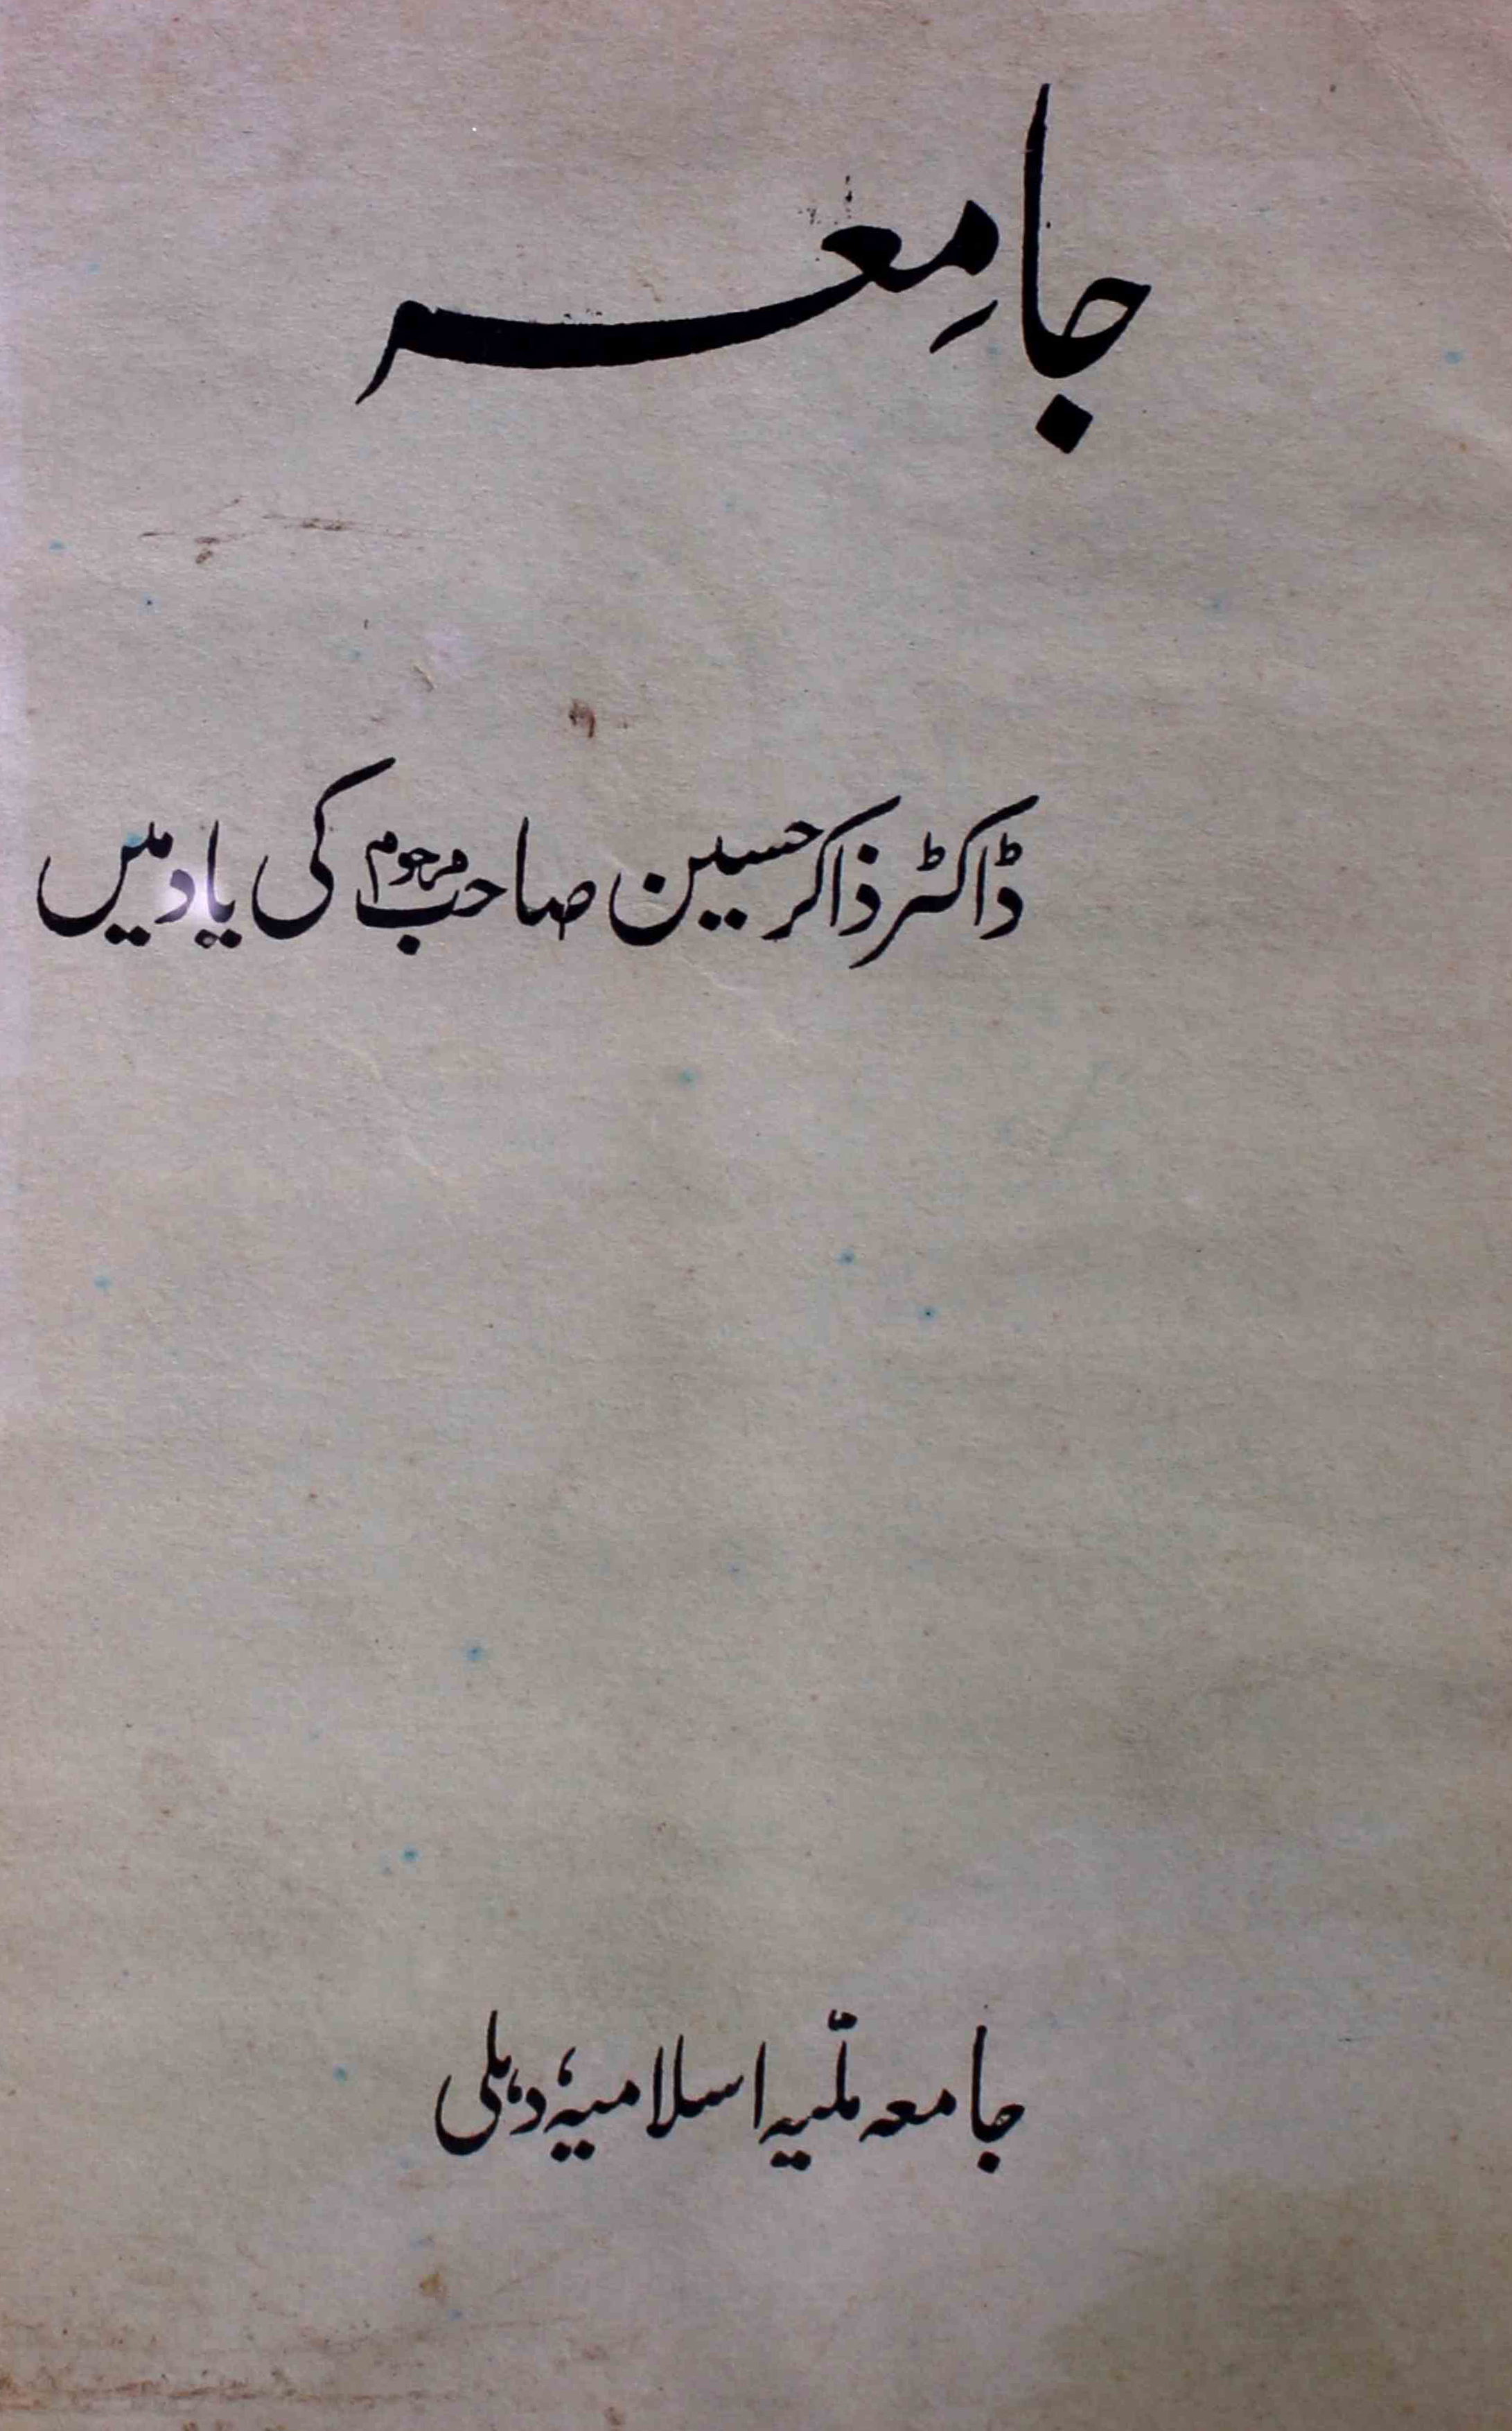 جامِعہ
ڈاکٹر ذاکر حسین صاحب مرحوم کی یاد میں
جامعہ ملّیہ اسلامیہ، دہلی